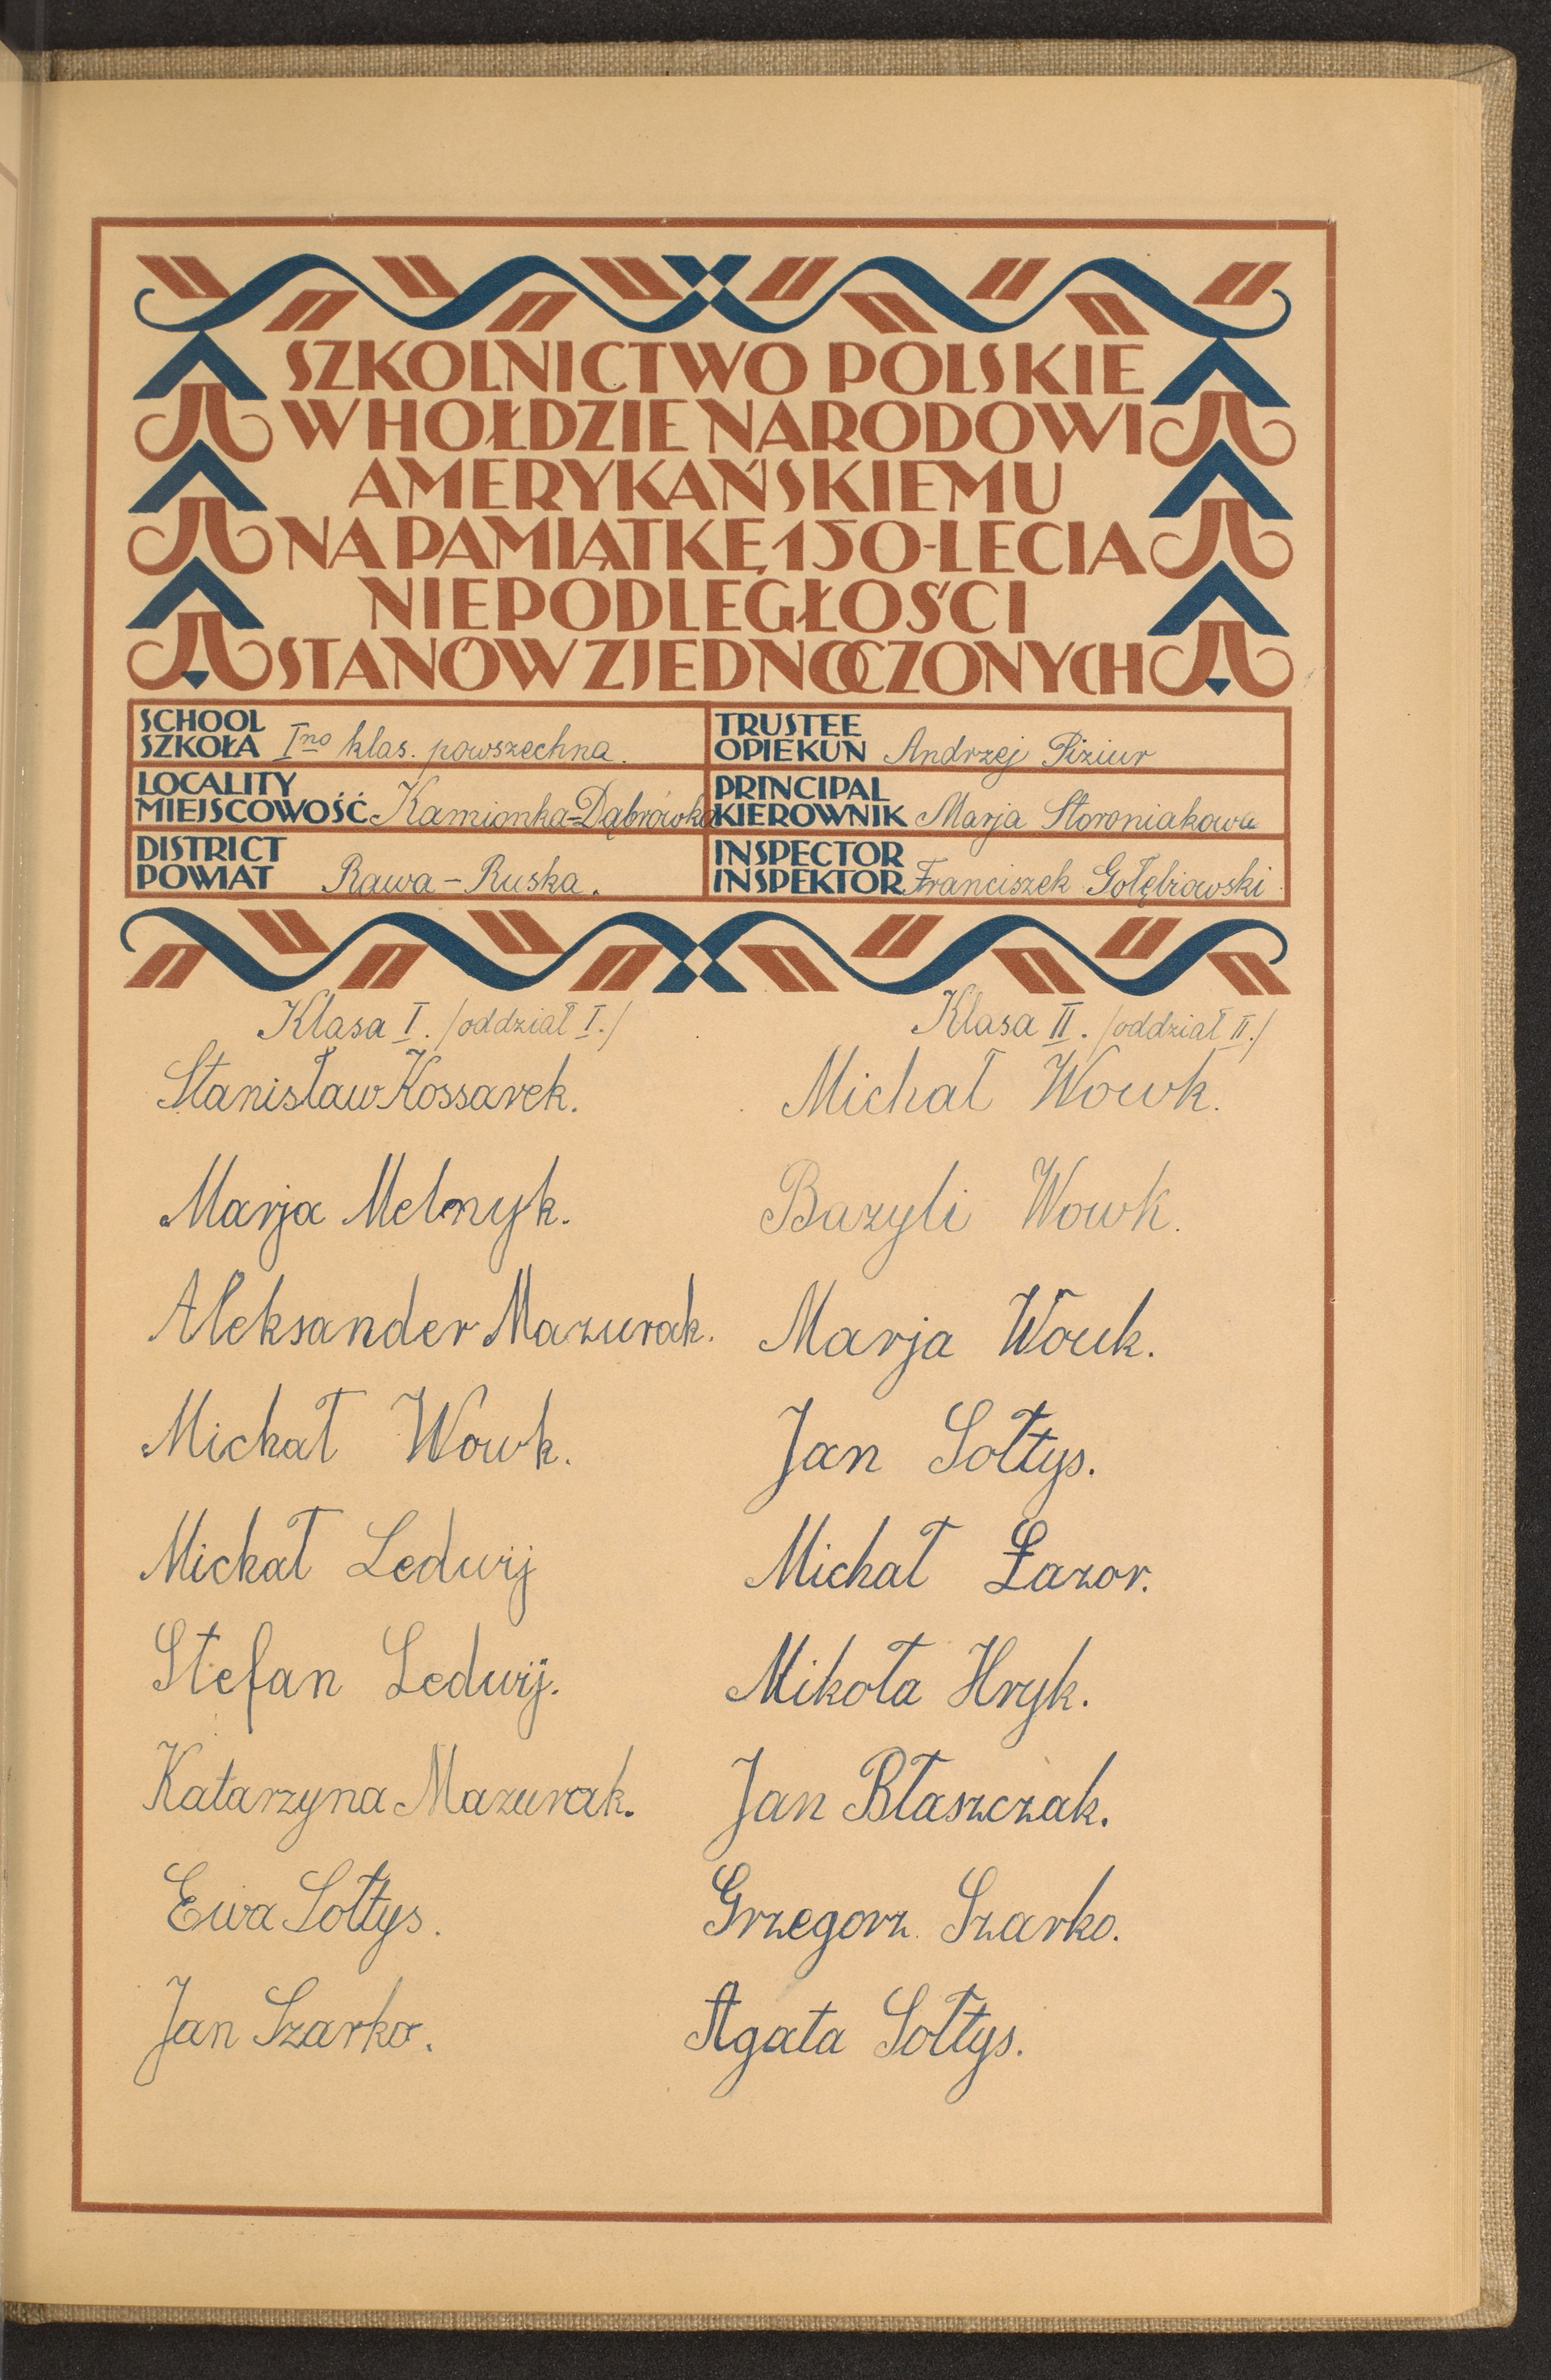 SZKOLNICTWO POLSKIE
W HOŁDZIE NARODOWI
AMERYKAŃSKIEMU
NA PAMIĄTKĘ 150-LECIA
NIEPODLEGŁOŚCI
STANÓW ZJEDNOCZONYCH
SCHOOL
SZKOŁA I no klas. powszechna.
TRUSTEE
OPIEKUN Andrzej Piziur
LOCALITY
MIEJSCOWOŚĆ Kamionka-Dąbrówka
PRINCIPAL
KIEROWNIK Marja Storoniakowa
DISTRICT
POWIAT Rawa-Ruska.
INSPECTOR
INSPEKTOR Franciszek Gołębiowski
Klasa I. /oddział I./
Stanisław Kossarek.
Marja Melnyk.
Aleksander Mazurak.
Michał Wowk.
Michał Ledwij
Stefan Ledwij.
Katarzyna Mazurak.
Ewa Sołtys.
Jan Szarko.
Klasa II. /oddział II./
Michał Wowk.
Bazyli Wowk.
Marja Wouk.
Jan Sołtys.
Michał Łazor.
Mikoła Hryk.
Jan Błaszczak.
Grzegorz Szarko.
Agata Sołtys.